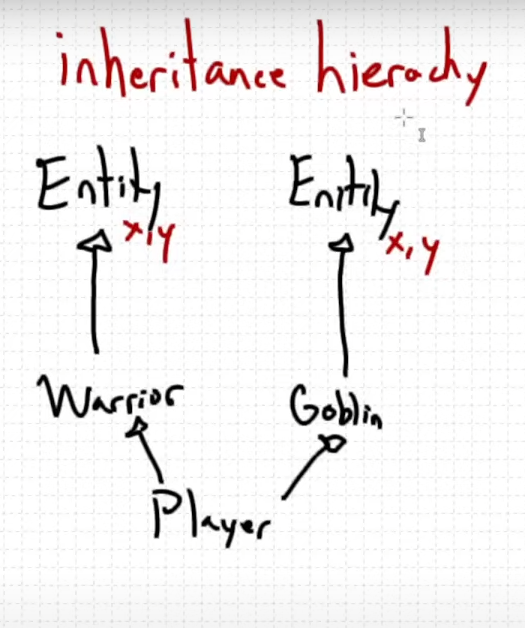 inheritance hierachy
Entity Enitily
x,y x,y
Warrior Goblin
Player